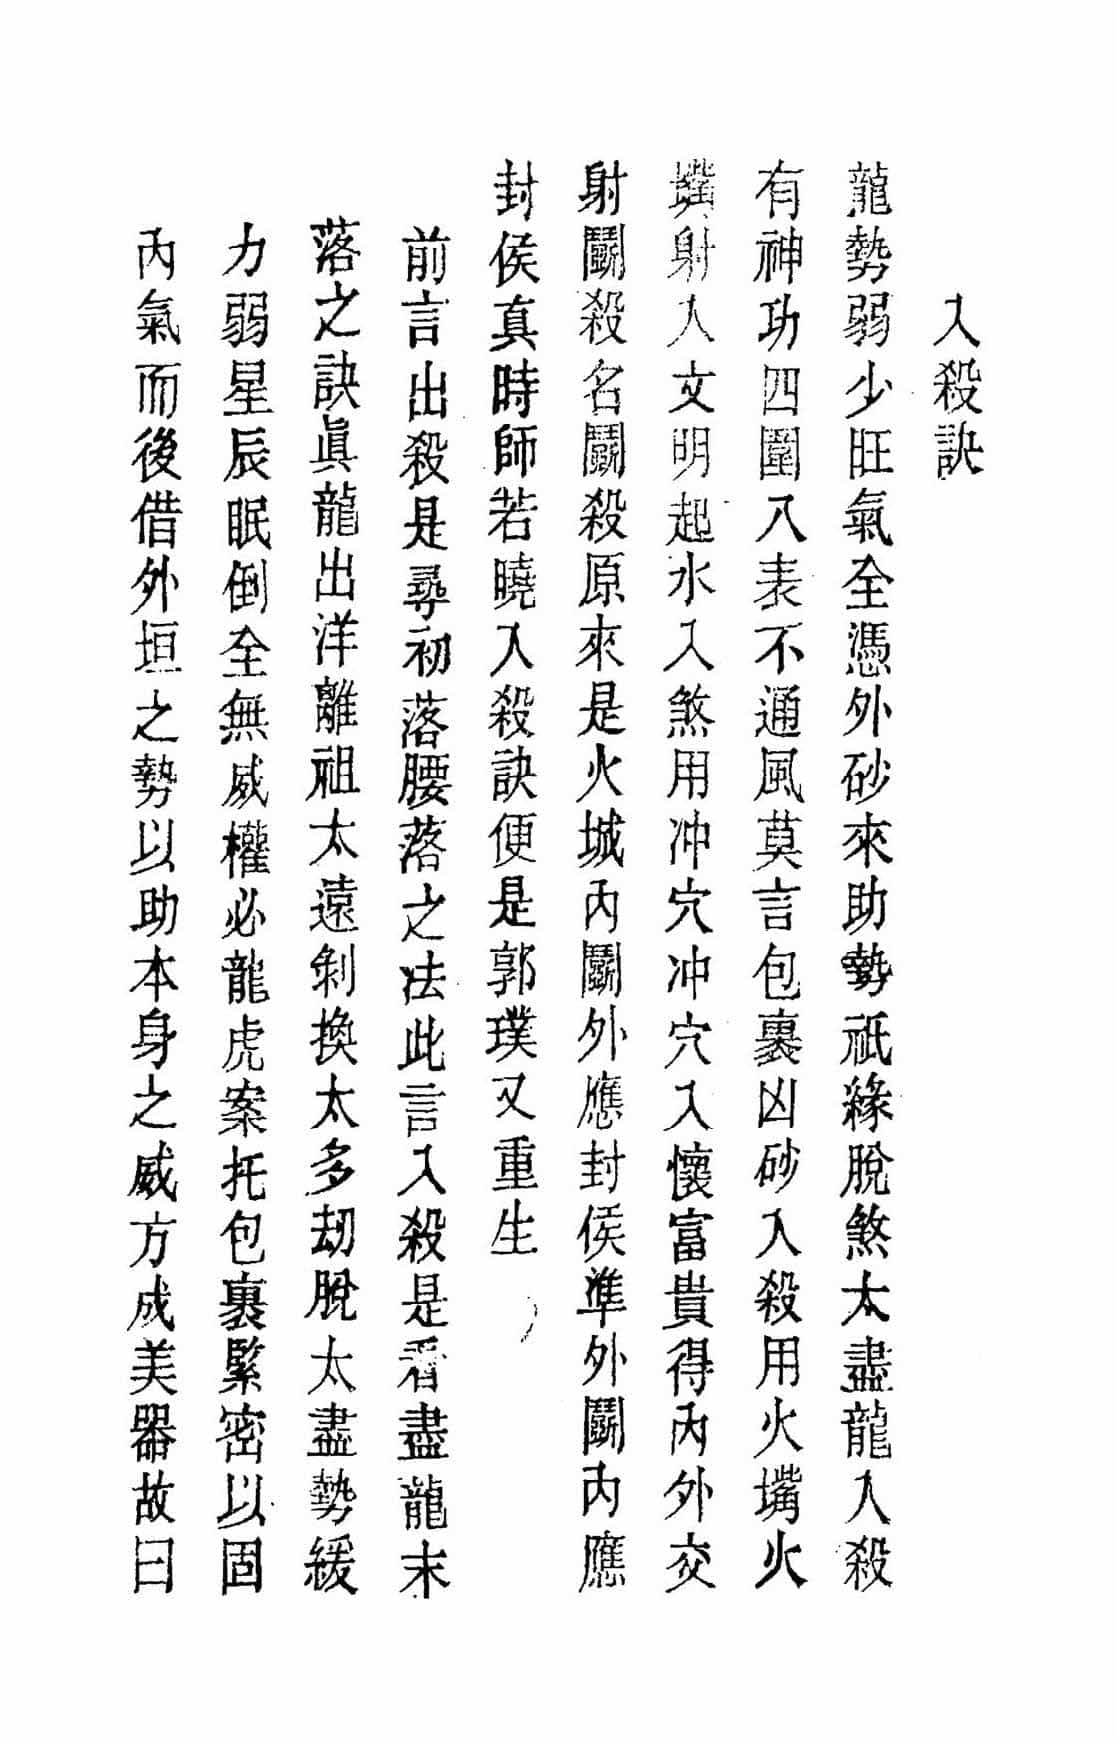 入殺訣
龍勢弱少旺氣全憑外砂來助勢祇緣脫煞太盡龍入殺
有神功四圍八表不通風莫言包裹凶砂入殺用火嘴火
嘴射人文明起水入煞用冲穴冲穴入懷富貴得內外交
射鬭殺名鬭殺原來是火城內鬭外應封侯準外鬭內應
封侯真時師若曉入殺訣便是郭璞又重生
前言出殺是尋初落腰落之法此言入殺是看盡龍末
落之訣眞龍出洋離祖太遠剝換太多刼脫太盡勢緩
力弱星辰眠倒全無威權必龍虎案托包裹緊密以固
內氣而後借外垣之勢以助本身之威方成美器故曰